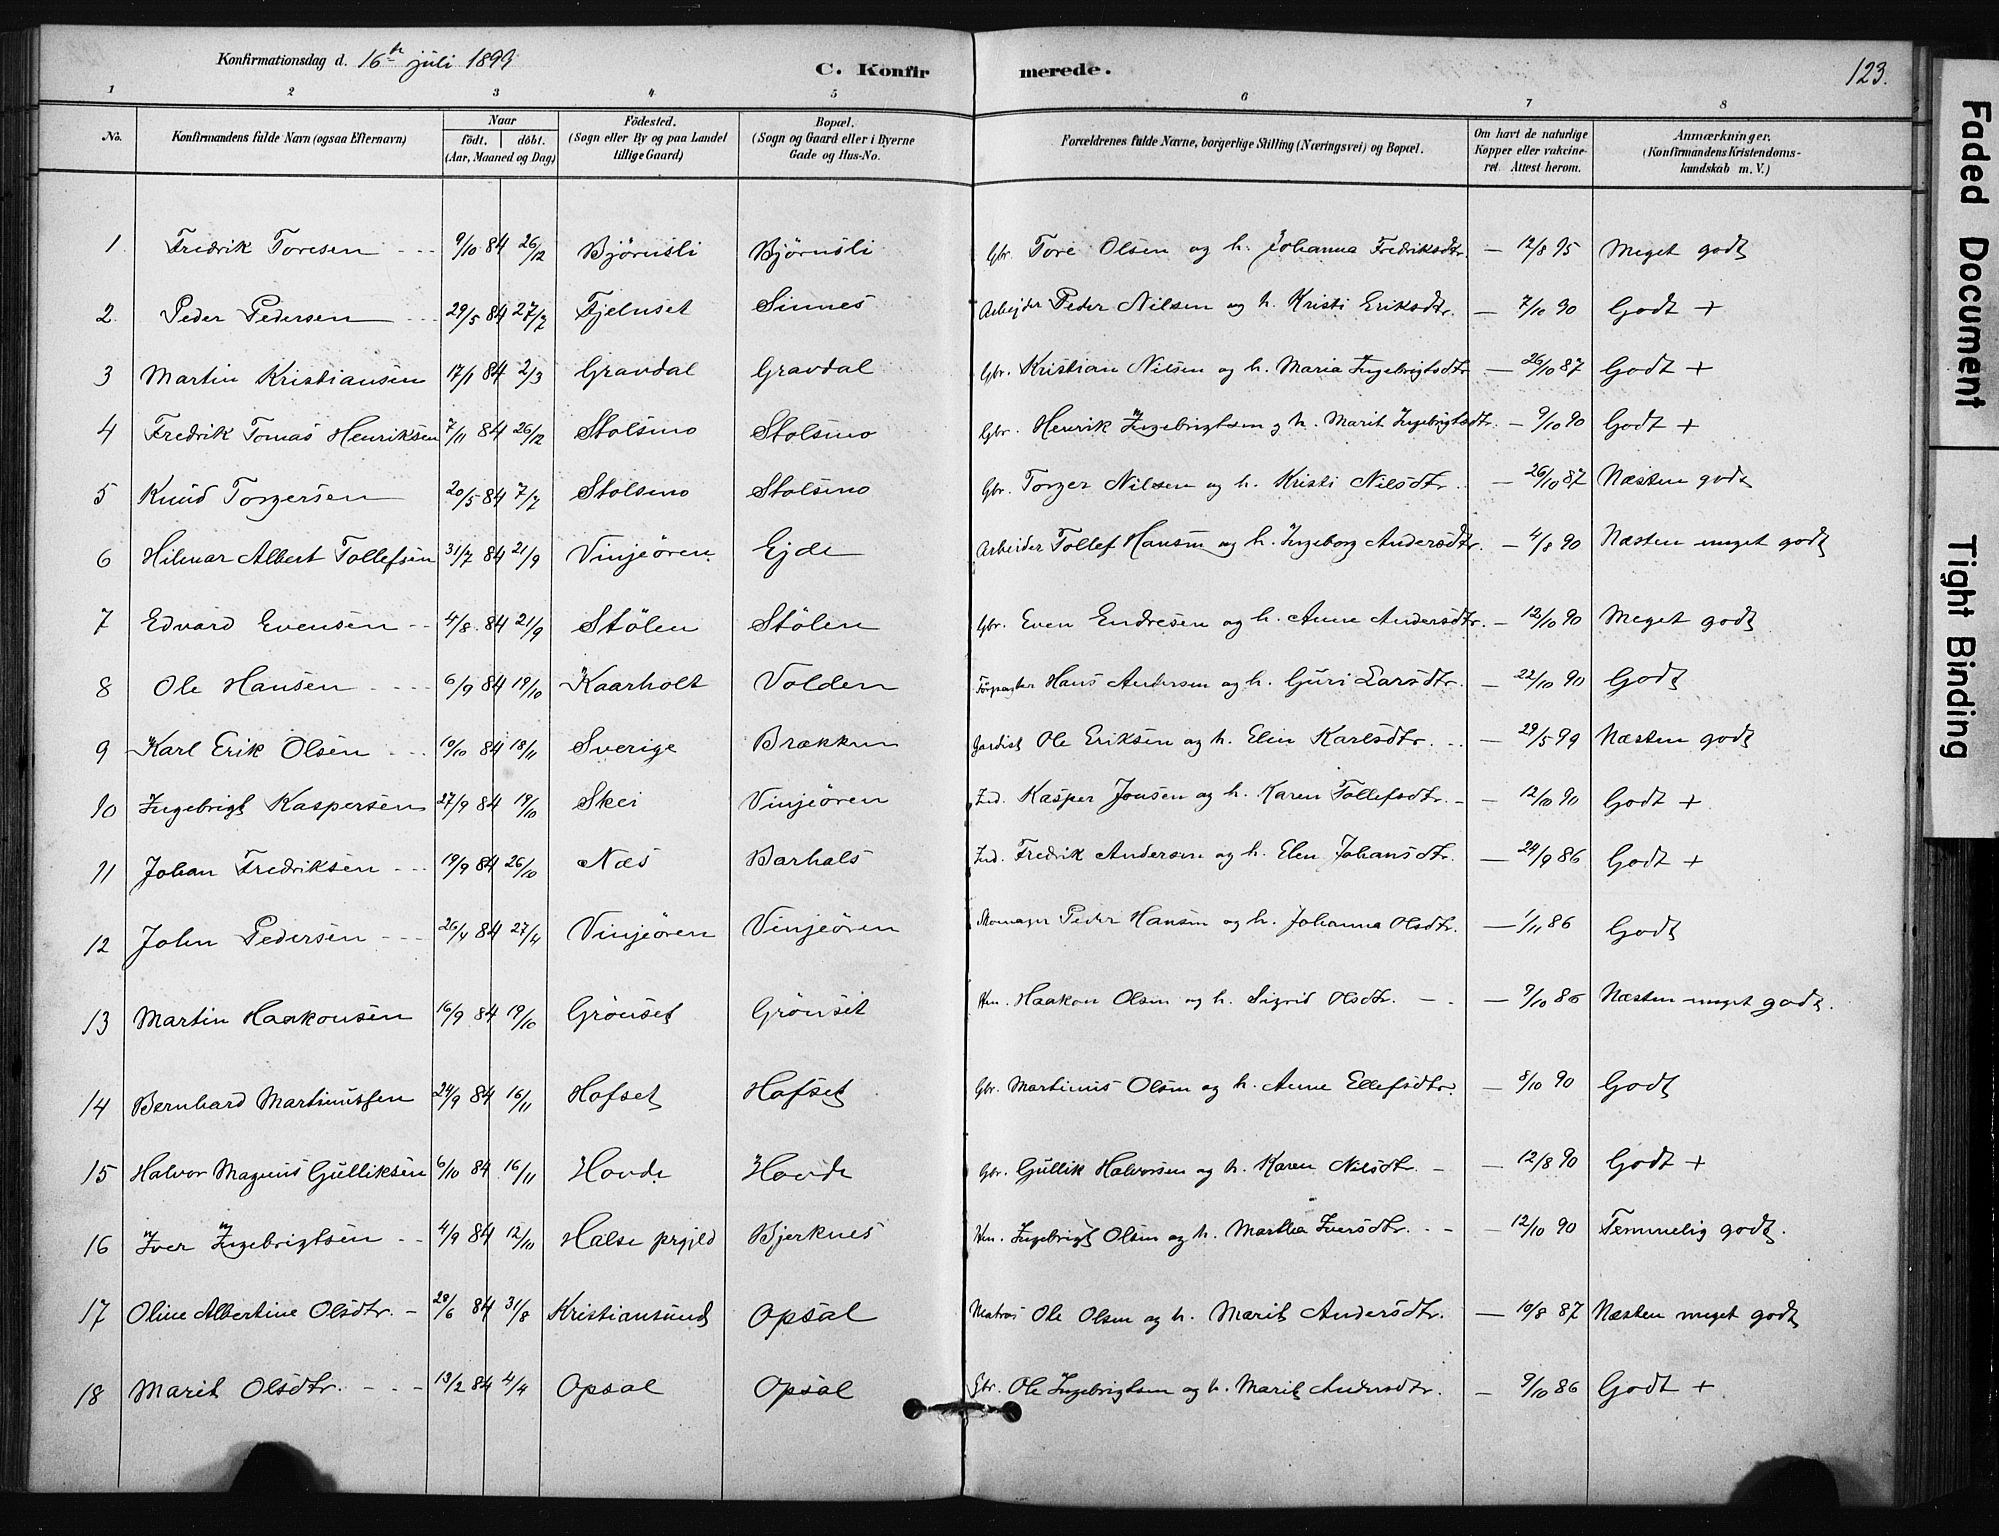 Konfirmationsdag d. 16de juli 1899
C. Konfirmerede.
123.
1 2 3 4 5 6 7 8
No.
Konfirmandens fulde Navn (ogsaa Efternavn)
Naar
født. døbt.
(Aar, Maaned og Dag)
Födested.
(Sogn eller By og paa Landet
tillige Gaard)
Bopæl.
(Sogn og Gaard eller i Byerne
Gade og Hus-No.
Forældrenes fulde Navne, borgerlige Stilling (Næringsvei) og Bopæl.
Om havt de naturlige
Kopper eller vakcine-
ret. Attest herom.
Anmærkninger.
(Konfirmandens Kristendoms-
kundskab m. V.)
1. Fredrik Toresen 9/10 84 26/12 Bjørnsli Bjørnsli Gbr. Tore Olsen og h. Johanna Fredriksdtr. — 12/8 95 Meget godt
2. Peder Pedersen 29/5 84 27/7 Fjelnset Sinnes Arbejder Peder Nilsen og h. Kristi Eriksdtr. — 7/10 90 Godt +
3 Martin Kristiansen 17/1 84 2/3 Gravdal Gravdal Gbr. Kristian Nilsen og h. Maria Ingebrigtsdtr — 26/10 87 Godt +
4 Fredrik Tomas Henriksen 7/11 84 26/12 Stolsmo Stolsmo Gbr. Henrik Ingebrigtsen og h. Marit Ingebrigtsdtr. — 9/10 90 Godt +
5 Knud Torgersen 20/5 84 7/7 Stolsmo Stolsmo Gbr. Torger Nilsen og h. Kristi Nilsdtr. — 26/10 87 Næsten godt
6 Hilmar Albert Tollefsen 31/7 84 21/9 Vinjeören Ejde Arbeider Tollef Hansen og h. Ingeborg Andersdtr. — 4/8 90 Næsten meget godt
7 Edvard Evensen 4/8 84 21/9 Stölen Stölen Gbr. Even Endresen og h. Anne Andersdtr. — 12/10 90 Meget godt
8 Ole Hansen 6/9 84 19/10 Kaarholt Volden Forpagter Hans Andersen og h. Guri Larsdtr. — 22/10 90 Godt
9 Karl Erik Olsen 19/10 84 18/11 Sverige Brækken Ole Eriksen og h. Elin Karlsdtr. — 29/5 99 Næsten godt
10 Ingebrigt Kaspersen 27/9 84 19/10 Skei Vinjeören Ind. Kasper Jonsen og h. Karen Tollefsdtr. — 12/10 90 Godt +
11 Johan Fredriksen 19/9 84 26/10 Næs Barhals Ind. Fredrik Andersen og h. Elen Johansdtr. — 24/9 86 Godt +
12 John Pedersen 26/4 84 27/4 Vinjeören Vinjeören Skomager Peder Hansen og h. Johanna Olsdtr. — 1/11 86 Godt
13 Martin Haakonsen 16/9 84 19/10 Grönset Grönset Hm. Haakon Olsen og h. Sigrid Olsdtr. — 9/10 86 Næsten meget godt.
14 Bernhard Martinussen 24/9 84 16/11 Hofset Hofset Gbr. Martinus Olsen og h. Anne Ellefsdtr. — 8/10 90 Godt
15 Halvor Magnus Gulliksen 6/10 84 16/11 Hovde Hovde Gbr. Gullik Halvorsen og h. Karen Nilsdtr. — 12/8 90 Godt +
16 Iver Ingebrigtsen 4/9 84 12/10 Halse prgjld Bjerknes Hm. Ingebrigt Olsen og h. Martha Iversdtr. — 12/10 90 Temmelig godt.
17 Oline Albertine Olsdtr. 28/6 84 31/8 Kristiansund Opsal Matros Ole Olsen og h. Marit Andersdtr. — 19/8 87 Næsten meget godt
18 Marit Olsdtr. 13/2 84 4/4 Opsal Opsal Gbr. Ole Ingebrigtsen og h. Marit Andersdtr. — 9/10 86 Godt +
Faded Document
Tight Binding